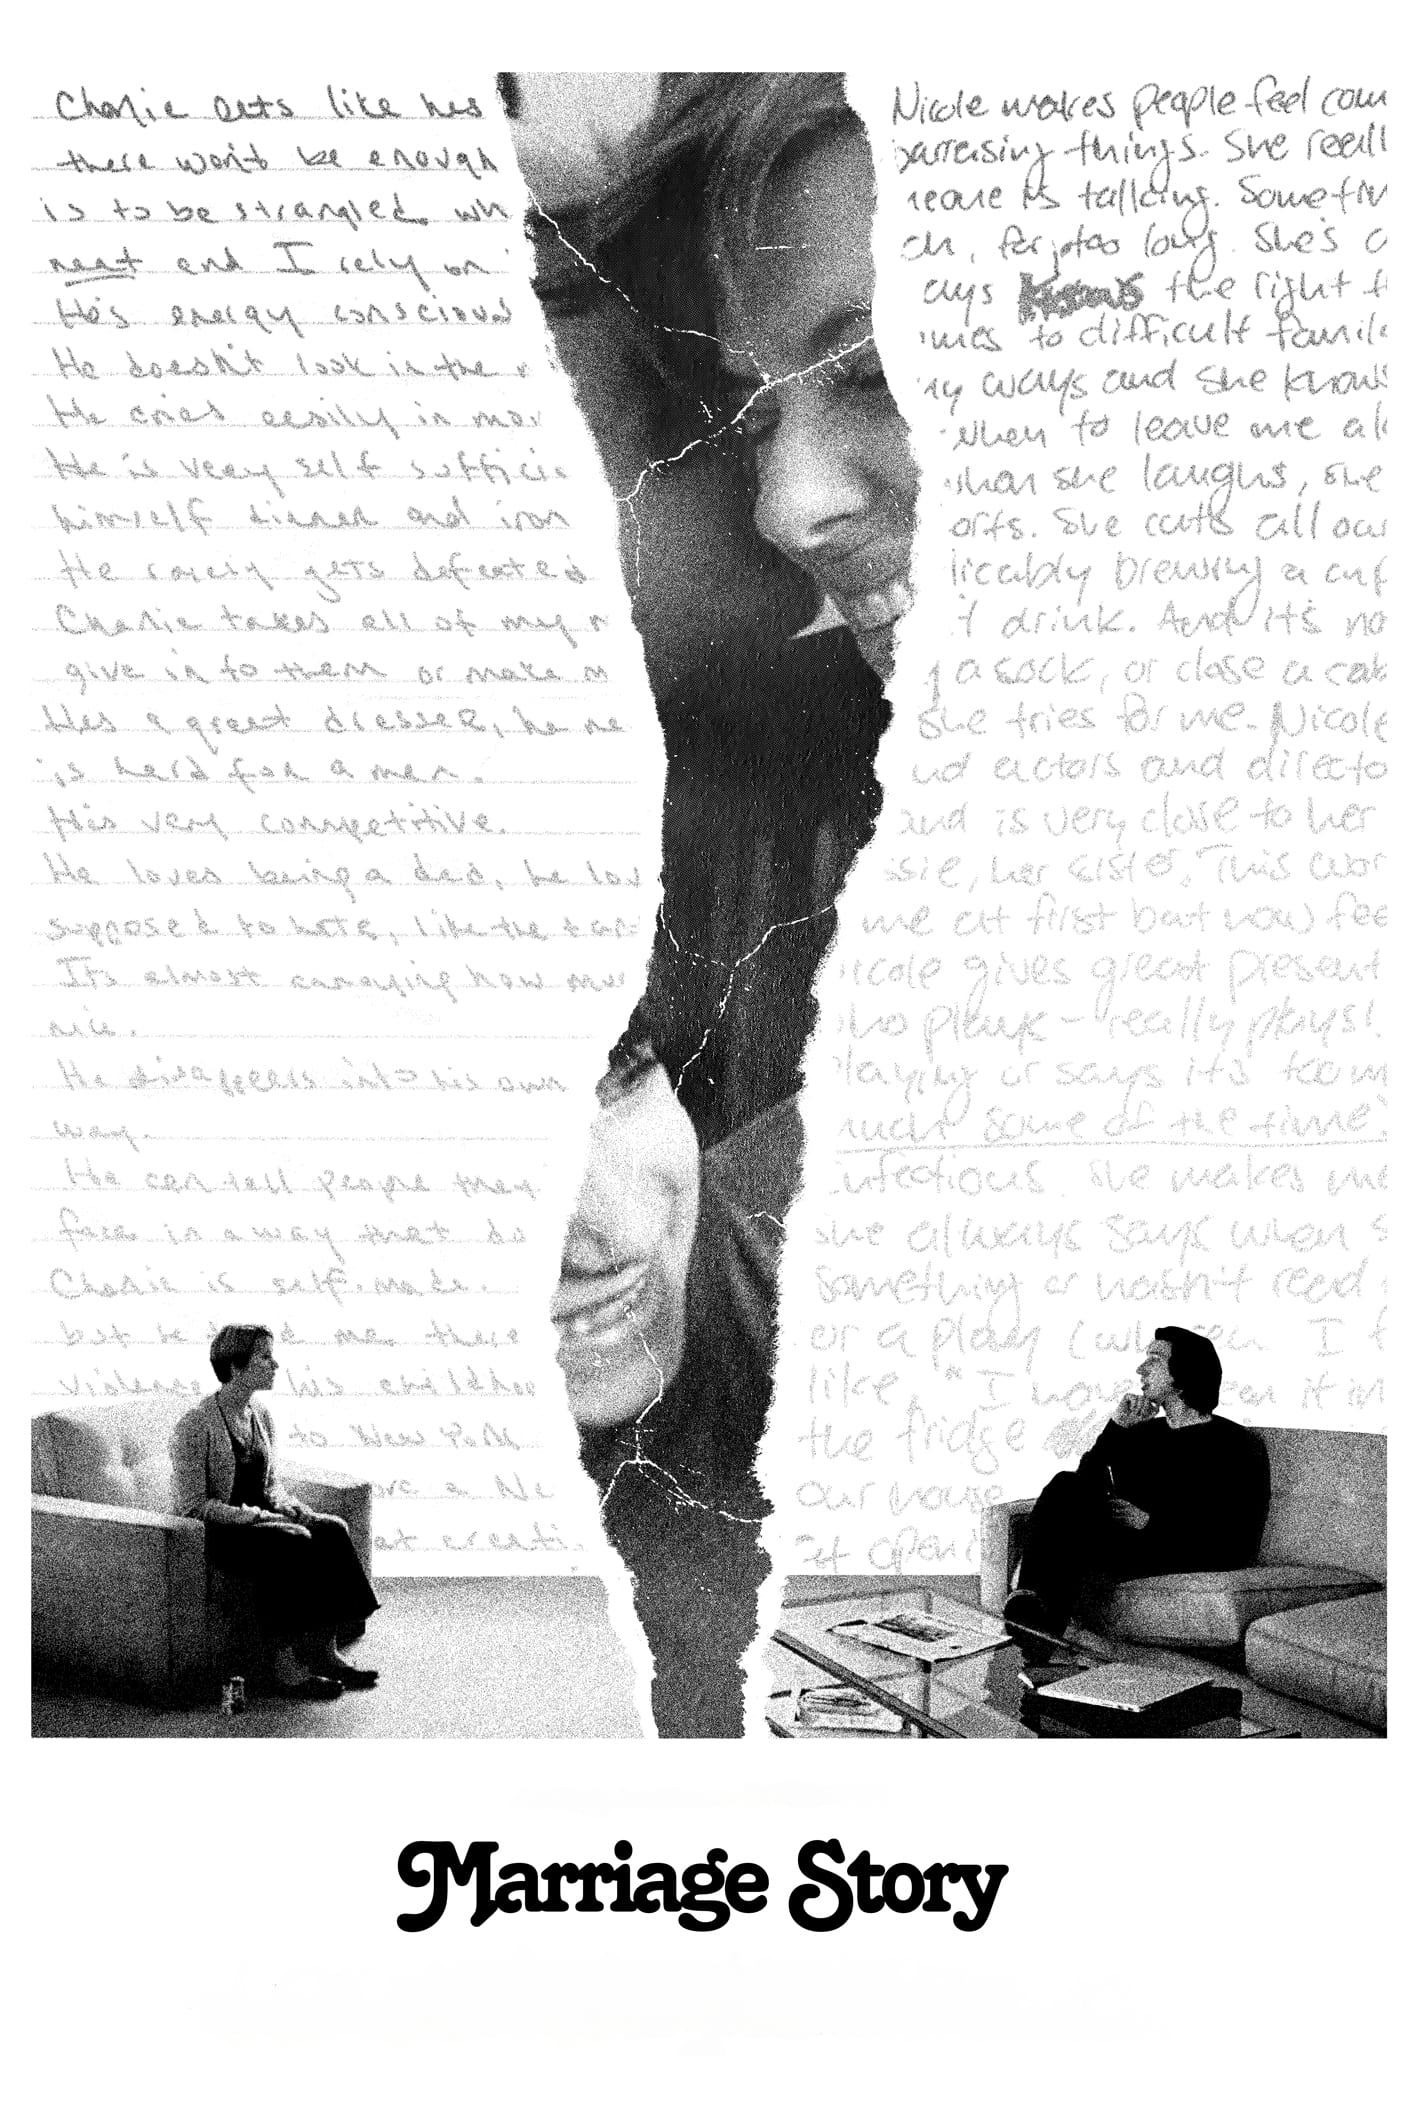 Charlie eats like he's
there won't be enough
is to be strangled wh
neat and I rely on
He's energy conscious
He doesn't look in the
He cries easily in mo
He is very self suffici
himself dinner and iron
He rarely gets defeated
Charlie takes all of my
give in to them or make
He's a great dresser, he
is hard for a man.
He's very competitive.
He loves being a dad, he lov
supposed to hate, like the
It's almost annoying how mu
nice.
He disappears into his own
way.
He can tell people they
face in a way that do
Charlie is self-made.
but he me there
violence his childhoo
to New York
a Ne
at creati
Nicole makes people feel com
barrassing things. She reall
neone is talking. Sometim
ch, for too long. She's
ays knows the right
imes to difficult famil
my ways and she knows
when to leave me al
when she laughs, she
orts. She cuts all our
licably brewing a cup
't drink. And it's no
a sock, or close a cab
she tries for me. Nicole
nd actors and directo
and is very close to her
ssie, her sister. This wor
me at first but now fee
icole gives great present
who plays - really plays!
laying or says it's too m
much some of the time.
infectious. She makes me
she always says when s
something or hasn't read
or a play I
like, "I it in
the fridge
our house
It open
Marriage Story